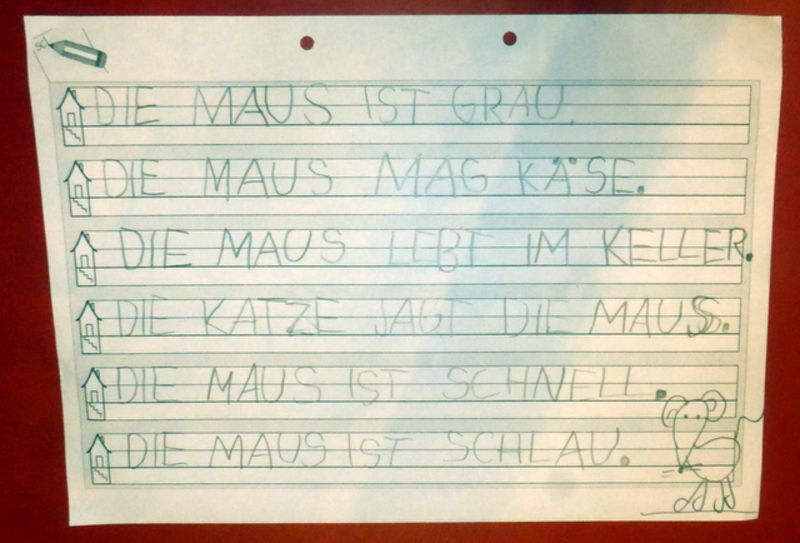 DIE MAUS IST GRAU.
DIE MAUS MAG KÄSE.
DIE MAUS LEBT IM KELLER.
DIE KATZE JAGT DIE MAUS.
DIE MAUS IST SCHNELL.
DIE MAUS IST SCHLAU.